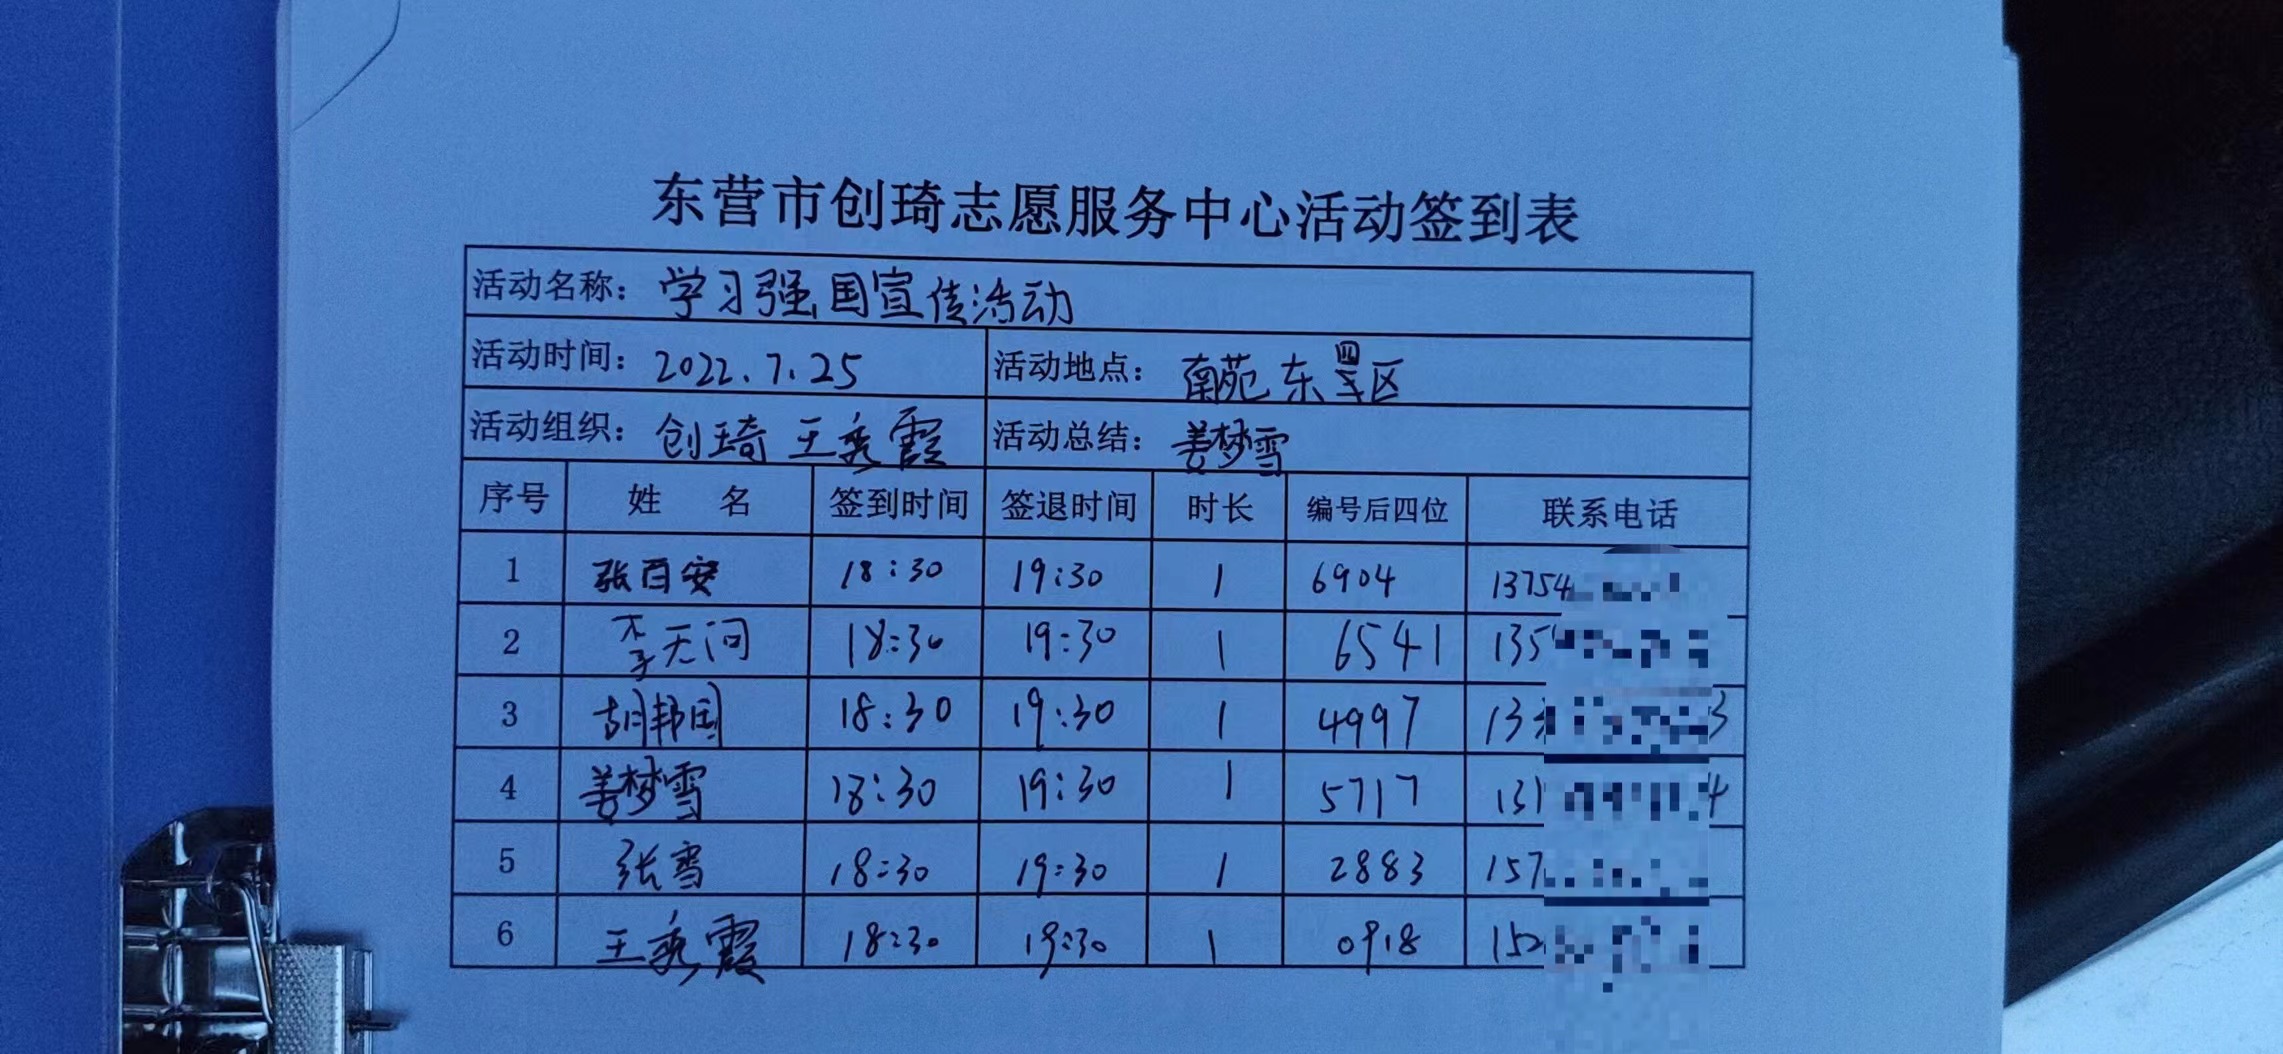 东营市创琦志愿服务中心活动签到表
活动名称：学习强国宣传活动
活动时间：2022.7.25 活动地点：南苑东四区
活动组织：创琦 王秀霞 活动总结：姜梦雪
序号 姓 名 签到时间 签退时间 时长 编号后四位 联系电话
1 张百安 18:30 19:30 1 6904 13754
2 李天问 18:30 19:30 1 6541 135
3 胡邦国 18:30 19:30 1 4997 13 3
4 姜梦雪 18:30 19:30 1 5717 131 4
5 张雪 18:30 19:30 1 2883 157
6 王秀霞 18:30 19:30 1 0918 152